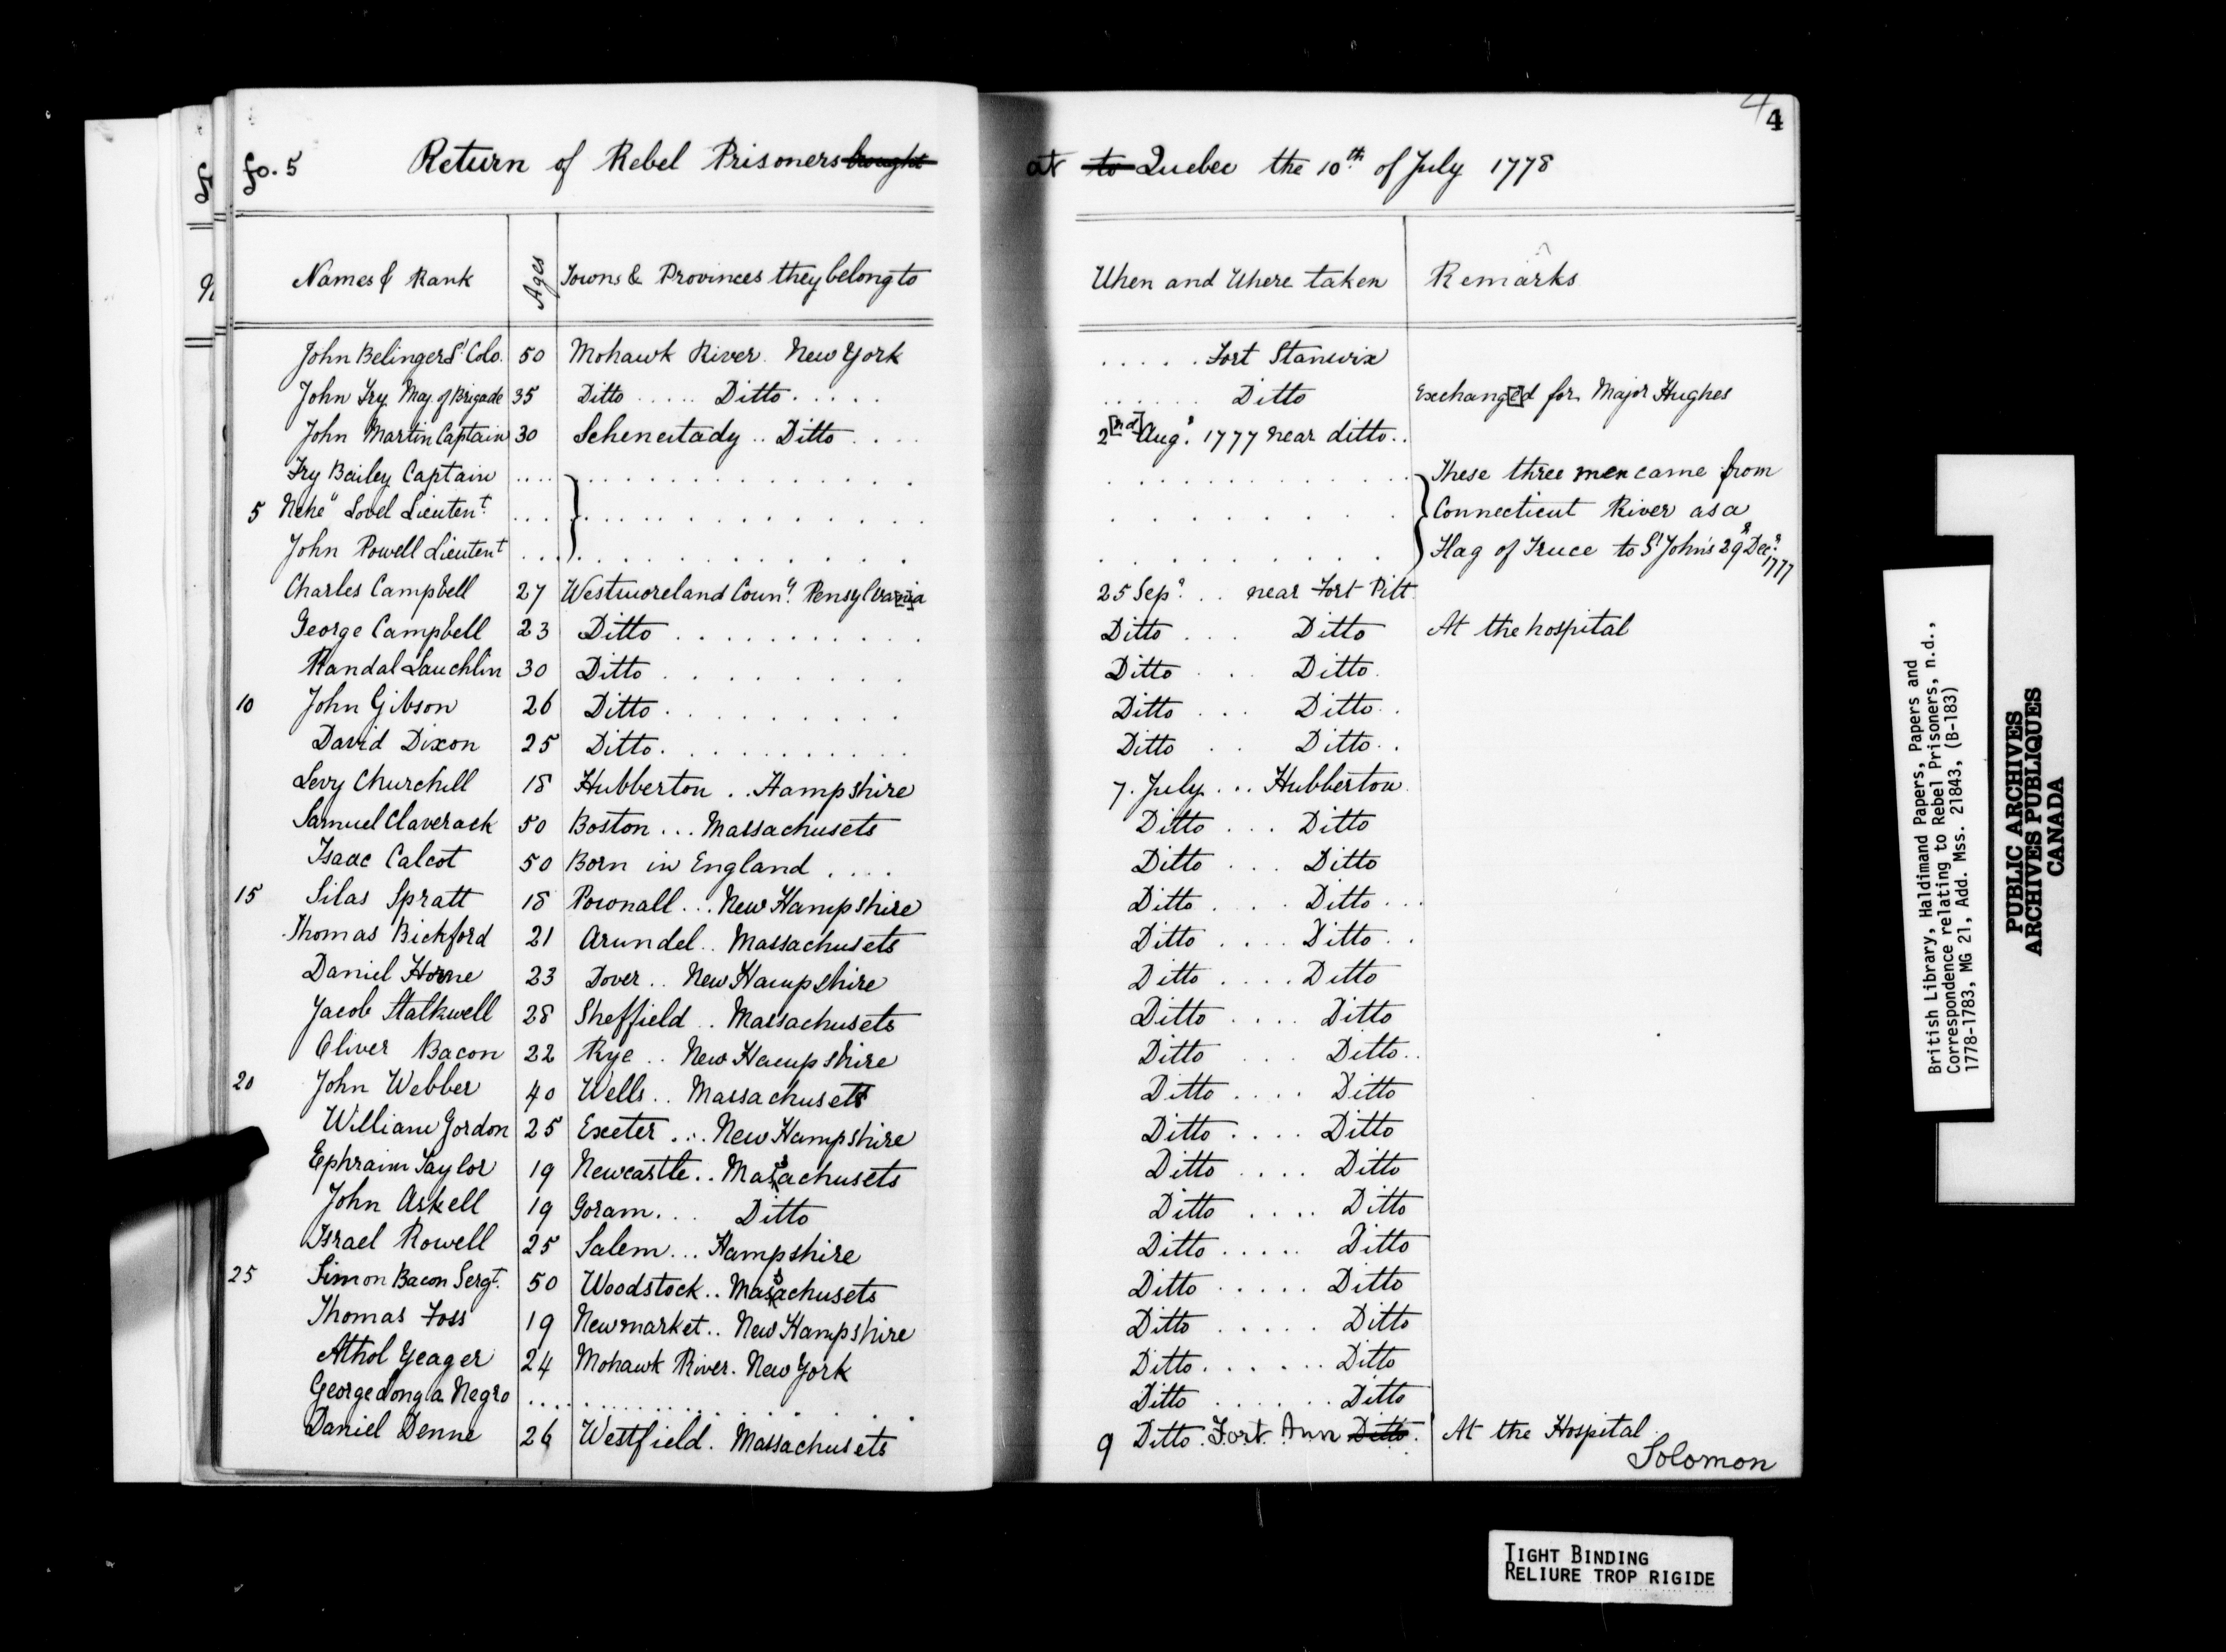 4
4
fo. 5 Return of Rebel Prisoners brought at to Quebec the 10th of July 1778
Names & Rank Ages Towns & Provinces they belong to When and Where taken Remarks
John Belinger Lt Colo. 50 Mohawk River New York . . . . . Fort Stanwix
John Fry Maj. of Brigade 35 Ditto ..... Ditto ..... ...... Ditto Exchang[e]d for Major Hughes
John Martin Captain 30 Schenectady .. Ditto .... 2[nd] Augt 1777 near ditto..
Fry Bailey Captain .... These three men came from
5 Nehh Lovel Lieutent ... Connecticut River as a
John Powell Lieutent ... Flag of Truce to St John's 29 Decr 1777
Charles Campbell 27 Westmoreland Couny Pensylva[ni]a 25 Sepr .. near Fort Pitt
George Campbell 23 Ditto . . . . Ditto ... Ditto At the hospital
Randal Lauchlin 30 Ditto . . . . Ditto ... Ditto.
10 John Gibson 26 Ditto . . . . Ditto ... Ditto..
David Dixon 25 Ditto . . . . Ditto .. Ditto..
Levy Churchill 18 Hubberton .. Hampshire 7. July ... Hubberton
Samuel Claverack 50 Boston ... Massachusets Ditto ... Ditto
Isaac Calcot 50 Born in England .... Ditto ... Ditto
15 Silas Spratt 18 Pownall ... New Hampshire Ditto .... Ditto ...
Thomas Bickford 21 Arundel .. Massachusets Ditto .... Ditto ..
Daniel Horne 23 Dover .. New Hampshire Ditto .... Ditto
Jacob Stalkwell 28 Sheffield .. Massachusets Ditto .... Ditto
Oliver Bacon 22 Rye .. New Hampshire Ditto ... Ditto..
20 John Webber 40 Wells .. Massachusets Ditto .... Ditto
William Gordon 25 Exeter ... New Hampshire Ditto .... Ditto
Ephraim Taylor 19 Newcastle .. Massachusets Ditto .... Ditto
John Askell 19 Goram ... Ditto Ditto .... Ditto
Israel Rowell 25 Salem ... Hampshire Ditto ..... Ditto
25 Simon Bacon Sergt. 50 Woodstock .. Massachusets Ditto ..... Ditto
Thomas Foss 19 Newmarket .. New Hampshire Ditto ..... Ditto
Athol Yeager 24 Mohawk River. New York Ditto ...... Ditto
George Long a Negro .... Ditto ...... Ditto
Daniel Denne 26 Westfield. Massachusets 9 Ditto. Fort Ann Ditto. At the Hospital
Solomon
British Library, Haldimand Papers, Papers and
Correspondence relating to Rebel Prisoners, n.d.,
1778-1783, MG 21, Add. Mss. 21843, (B-183)
PUBLIC ARCHIVES
ARCHIVES PUBLIQUES
CANADA
TIGHT BINDING
RELIURE TROP RIGIDE